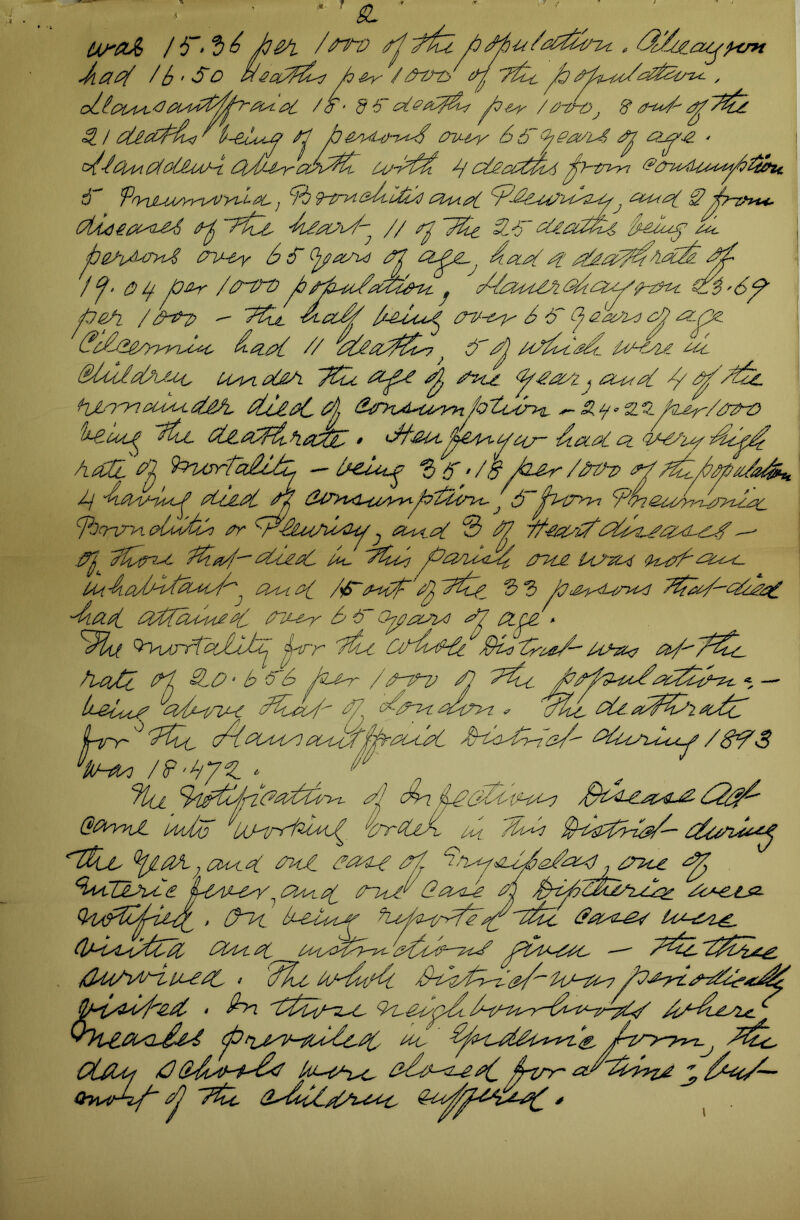 2
was 15.36 per 1000 of the population. Cilcaymon
had 16.50 deaths per 1000 of the population,
Llansantffraid 18.85 deaths per 1000, 8 out of the
21 deaths being of persons over 65 years of age.
Llanddewi Aberarth with 4 deaths from Consumption
5 Pneumonia, Bronchitis and Pleurisy, and 2 from
diseases of the heart, 11 of the 25 deaths being in
persons over 65 years of age, had a death rate of
19.04 per 1000 population, Llanerchayron 23.69
per 1000 — the half being over 65 years of age
Cilcennin had 11 deaths, 5 of which were in
Children under the age of one year, and 4 of the
remainder died of Consumption — 24.22 per 1000
being the death rate. Henfenyw had a very high
rate of Mortality — being 35.18 per 1000 of the population
4 having died of Consumption, 5 from Pneumonia
Bronchitis or Pleurisy, and 3 of Heart diseases —
of those that died in this parish one was not an
inhabitant, and 15 out of the 33 persons that died
had attained over 65 years of age.
The mortality for the whole District was at the
rate of 20.656 per 1000 of the population, —
being above that of London. The death rate
for the Llansantffraid District during 1893
was 18.472.
The Notification of Infectious Disease Act
Came into working order in this District during
the year, and one case of Erysipelas, one of
Enteric fever, and one Case of Diphtheria were
notified. On being reported the Cases were
Visited and instructions given — the three
survived. The whole District was periodically
visited. In those neighbourhoods where
Measles prevailed in Epidemic form, the
day schools were closed for a time, but
most of the children suffered.